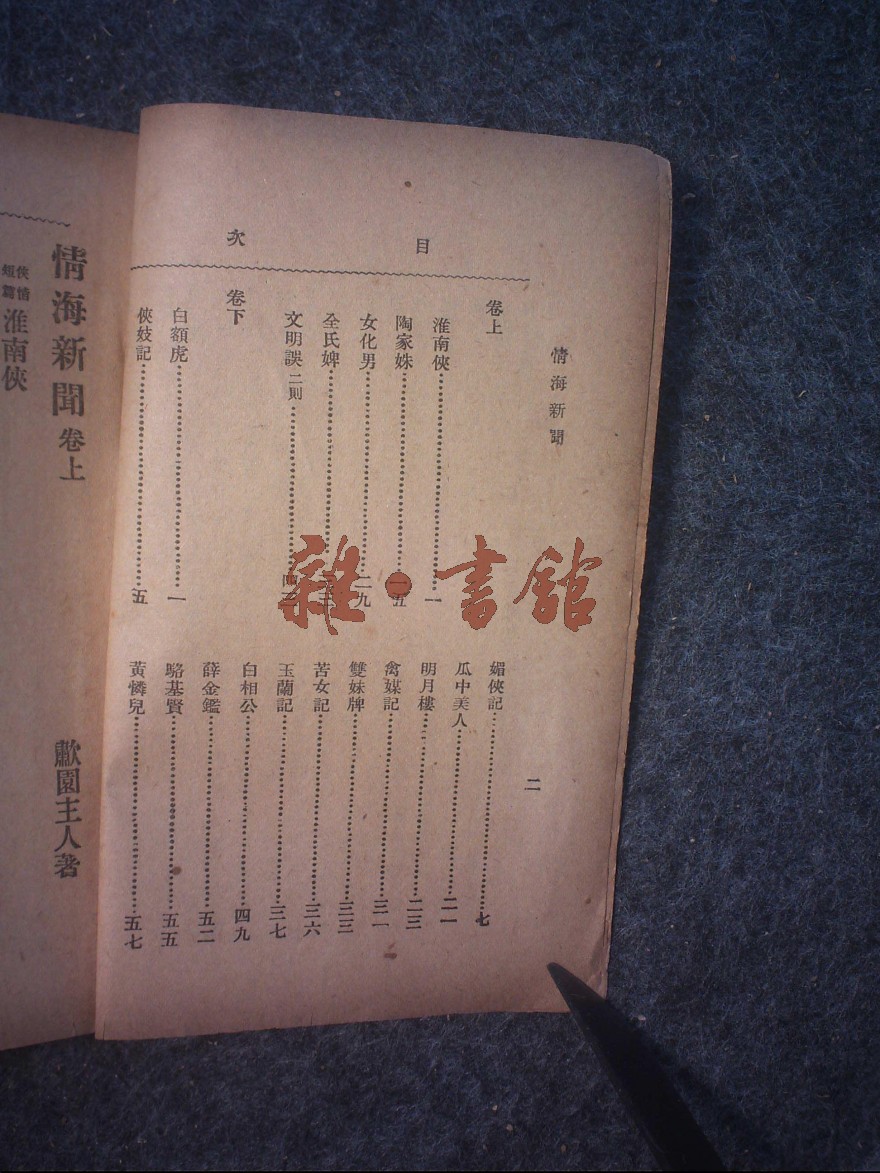 情海新聞
二
目次
卷上
淮南俠 一
陶家姝 一五
女化男 二九
全氏婢
文明誤 二則
卷下
白額虎 一
俠妓記 五
媚俠記 七
瓜中美人 二一
明月樓 二三
禽媒記 三一
雙妹牌 三三
苦女記 三六
玉蘭記 三七
白相公 四九
薛金鑑 五二
駱基賢 五五
黃憐兒 五七
情海新聞 卷上
歗園主人著
短篇 淮南俠
雜·書館